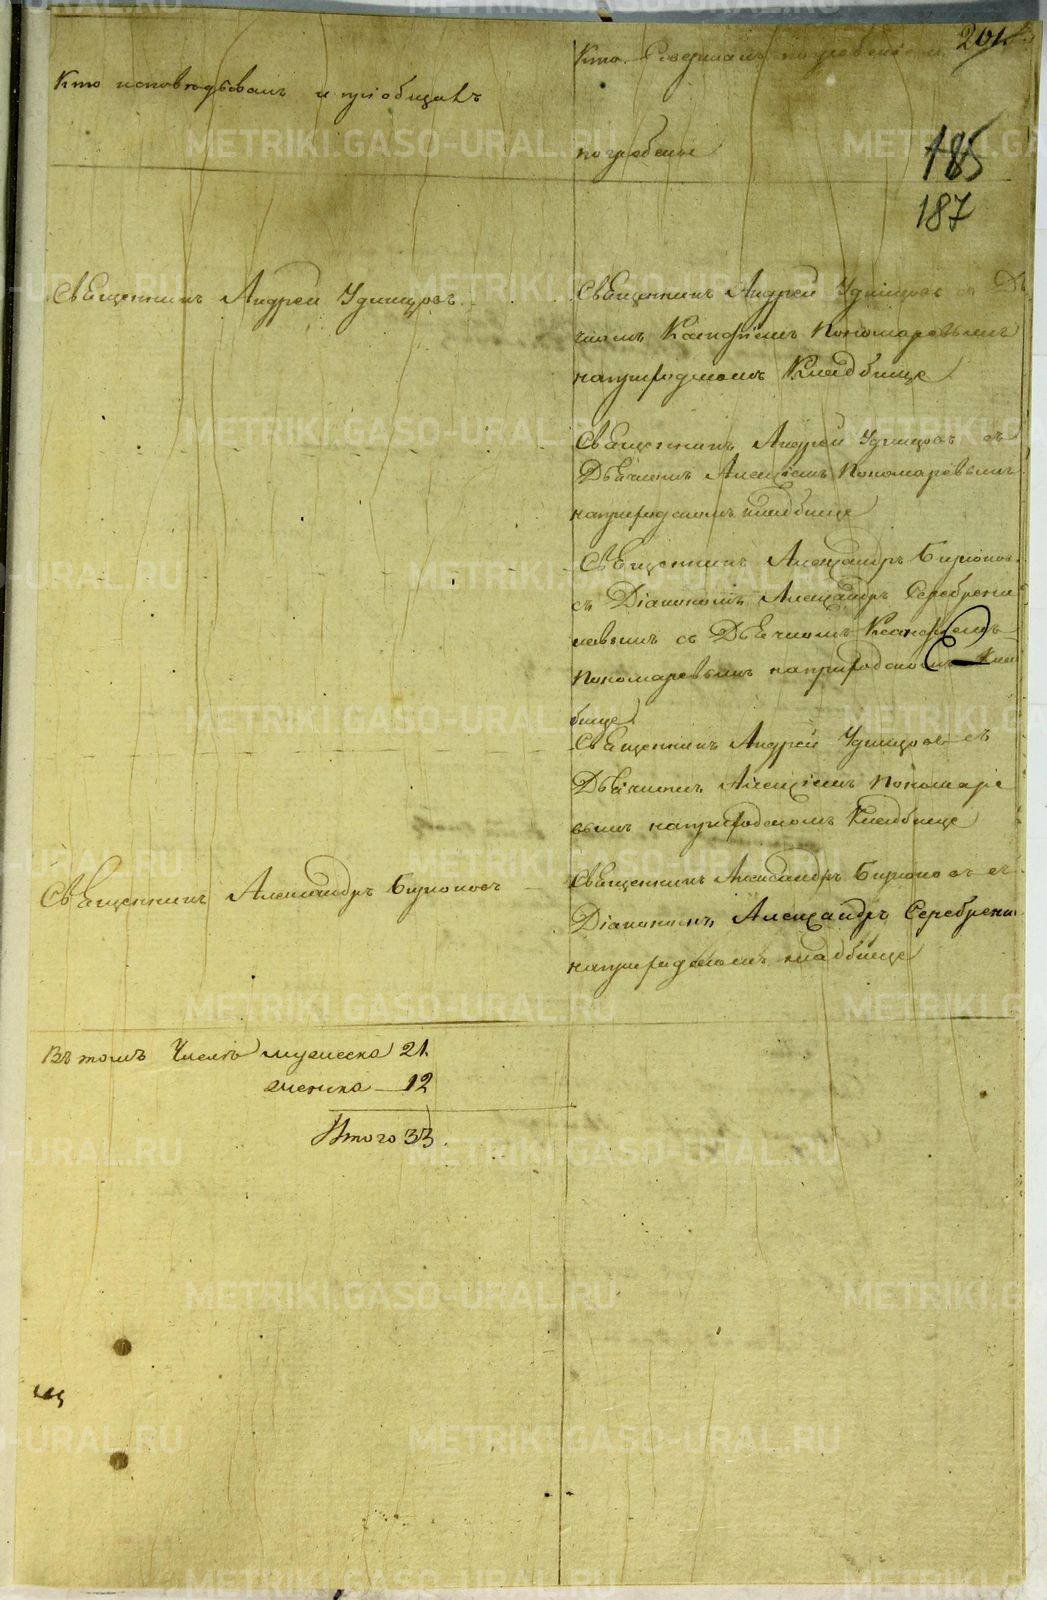 201
Кто исповѣдывалъ и приобщалъ
Кто Совершалъ погребенiе и
погребены
185
187
Священникъ Андрей Удинцовъ
Священникъ Андрей Удинцовъ съ Дь
чкомъ Ксанфiемъ Пономаревымъ
наприходскомъ Кладбище
Священникъ Андрей Удинцовъ съ
Дьячкомъ Алексiемъ Пономаревымъ
наприходскомъ кладбище
Священникъ Александръ Бирюковъ
съ Дiакономъ Александръ Серебрени
ковымъ съ Дьячкомъ Ксанфiемъ
Пономаревымъ наприходскомъ Клад
бище
Священникъ Андрей Удинцовъ съ
Дьячкомъ Алексiемъ Пономаре
вымъ наприходскомъ Кладбище
Священникъ Александръ Бирюковъ
Священникъ Александръ Бирюковъ съ
Дiакономъ Александръ Серебрени
наприходскомъ кладбище
Въ томъ Числѣ мужеска 21.
женска — 12
Итого 33.
METRIKI.GASO-URAL.RU